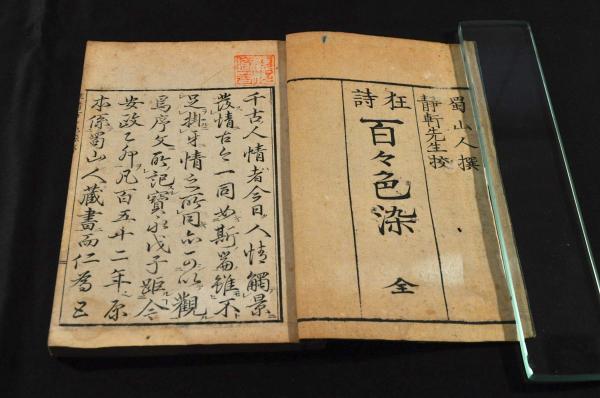 蜀山人撰
静軒先生校
狂詩
百々色染
全
千古人情者今日人情觸景
發情古今一同如斯篇雖不
足掛牙情之所同亦可以觀
焉序文所記寳永戊子距今
安政乙卯凡百五十二年原
本係蜀山人藏書而仁為